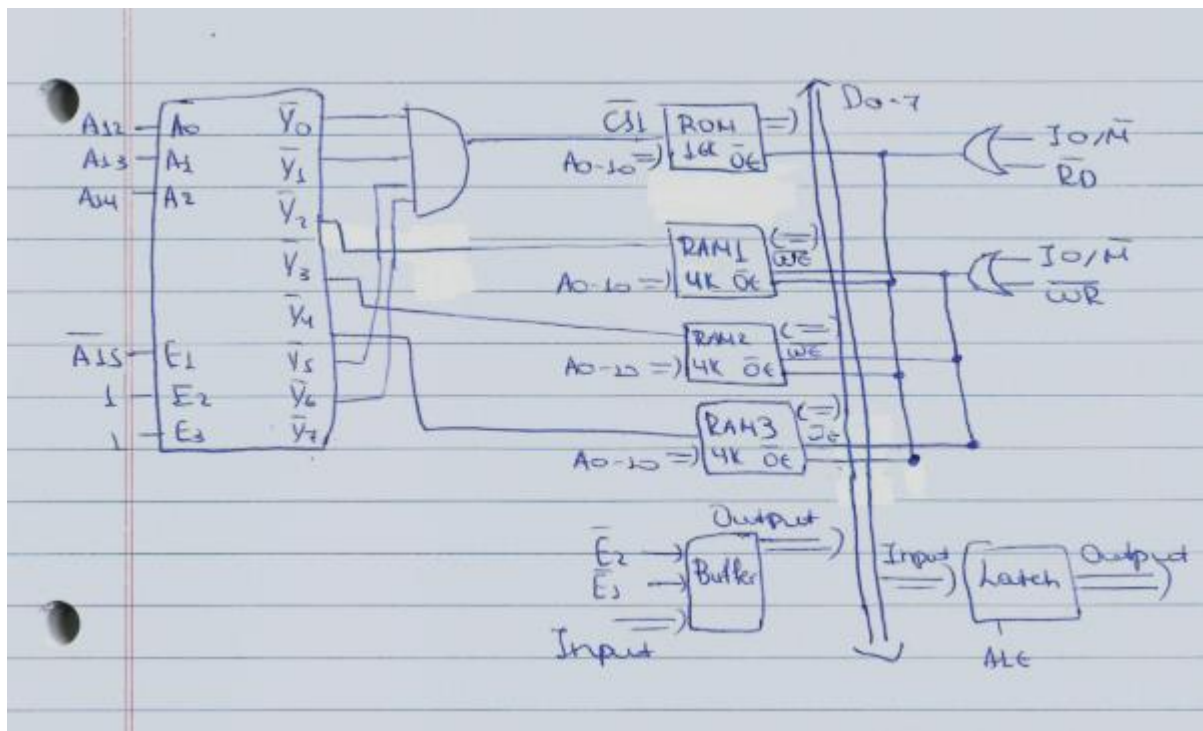 A12 A0 Ȳ0
A13 A1 Ȳ1
A14 A2 Ȳ2
Ȳ3
Ȳ4
A̅1̅5̅ E1 Ȳ5
1 E2 Ȳ6
1 E3 Ȳ7
C̅S̅1̅ ROM D0-7
A0-10 16K O̅E̅ IO/M̅
R̅D̅
RAM1 W̅E̅ IO/M̅
A0-10 4K O̅E̅ W̅R̅
RAM2 W̅E̅
A0-10 4K O̅E̅
RAM3
A0-10 4K O̅E̅
Output
E̅2 Buffer Input Latch Output
E̅1
Input ALE